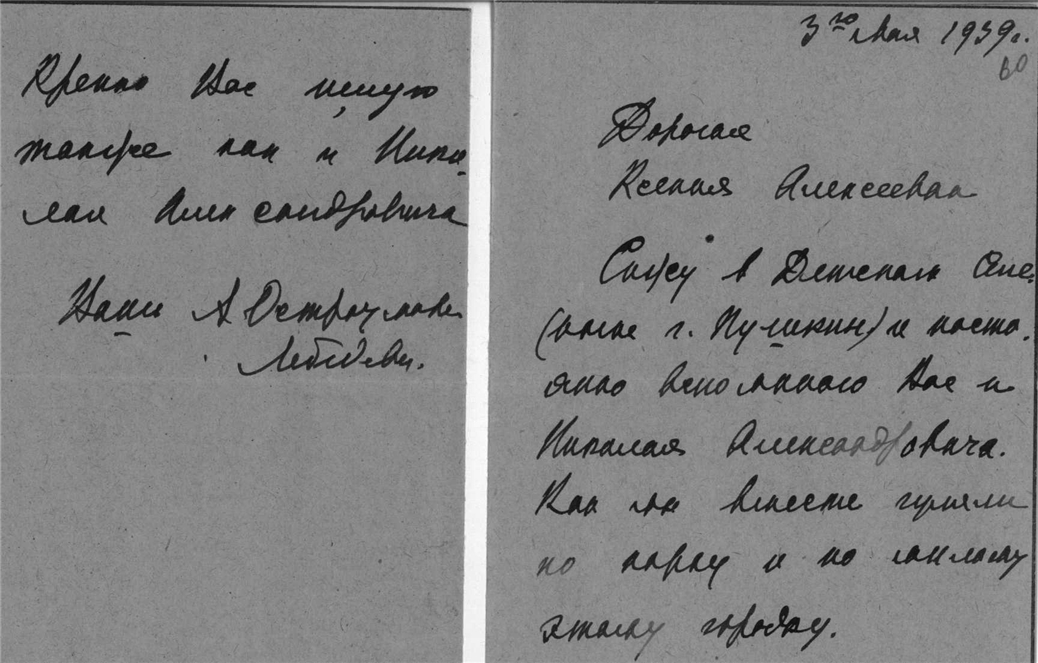 Крепко Вас целую
также как и Нико-
лая Александровича
Ваша А Остроумова
Лебедева.
3го Мая 1939 г.
60
Дорогая
Ксения Алексеевна
Сижу в Детском Селе
(ныне г. Пушкин) и посто-
янно вспоминаю Вас и
Николая Александровича.
Как мы вместе гуляли
по парку и по милому
этому городку.